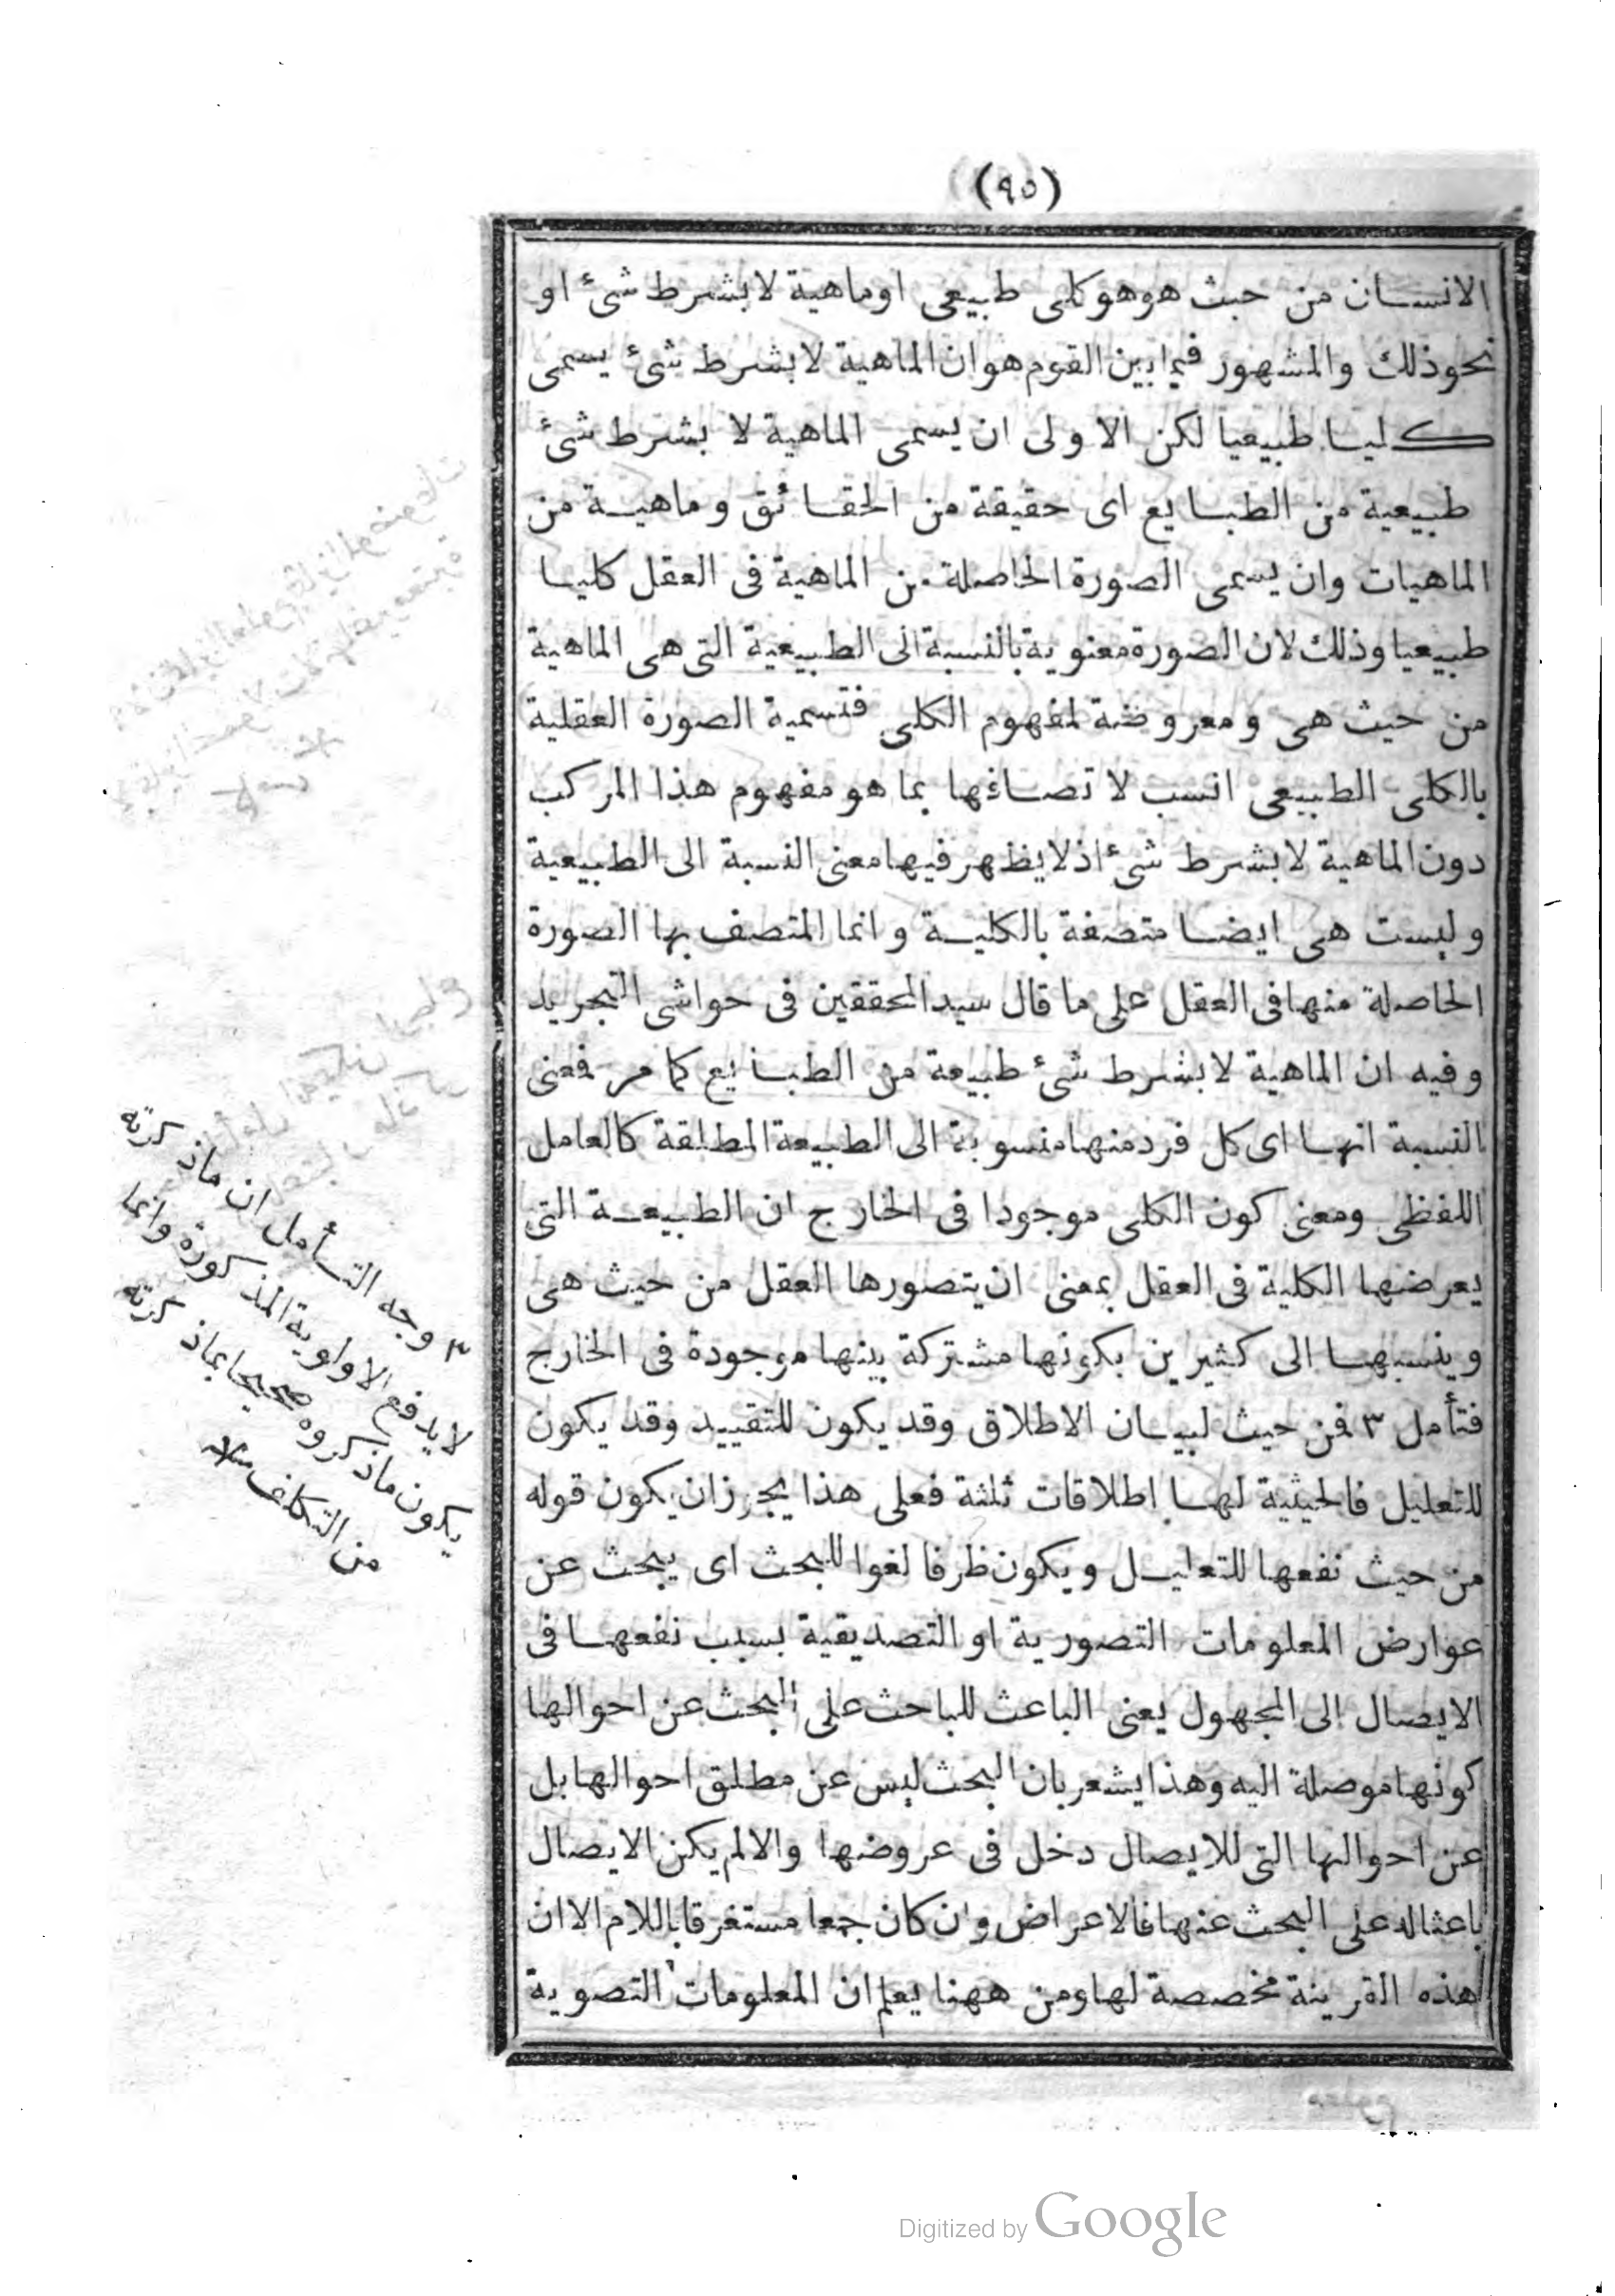 (٩٥)
الانسان من حيث هو هو كلى طبيعى او ماهية لا بشرط شئ او
نحو ذلك والمشهور فيما بين القوم هو ان الماهية لا بشرط شئ يسمى
كليا طبيعيا لكن الاولى ان يسمى الماهية لا بشرط شئ
طبيعية من الطبايع اى حقيقة من الحقائق وماهية من
الماهيات وان يسمى الصورة الحاصلة من الماهية فى العقل كليا
طبيعيا وذلك لان الصورة معنوية بالنسبة الى الطبيعية التى هى الماهية
من حيث هى ومعروضة لمفهوم الكلى فتسمية الصورة العقلية
بالكلى الطبيعى انسب لاتصافها بما هو مفهوم هذا المركب
دون الماهية لا بشرط شئ اذ لا يظهر فيها معنى النسبة الى الطبيعية
وليست هى ايضا متصفة بالكلية وانما المتصف بها الصورة
الحاصلة منها فى العقل على ما قال سيد المحققين فى حواشى التجريد
وفيه ان الماهية لا بشرط شئ طبيعة من الطبايع كما مر فمعنى
النسبة انها اى كل فرد منها منسوبة الى الطبيعة المطلقة كالعامل
اللفظى ومعنى كون الكلى موجودا فى الخارج ان الطبيعة التى
يعرضها الكلية فى العقل بمعنى ان يتصورها العقل من حيث هى
وينسبها الى كثيرين بكونها مشتركة بينها موجودة فى الخارج
فتأمل ٣ فمن حيث لبيان الاطلاق وقد يكون للتقييد وقد يكون
للتعليل فالحيثية لها اطلاقات ثلثة فعلى هذا يجوز ان يكون قوله
من حيث نفعها للتعليل ويكون ظرفا لغوا للبحث اى يبحث عن
عوارض المعلومات التصورية او التصديقية بسبب نفعها فى
الايصال الى المجهول يعنى الباعث للباحث على البحث عن احوالها
كونها موصلة اليه وهذا يشعر بان البحث ليس عن مطلق احوالها بل
عن احوالها التى للايصال دخل فى عروضها والا لم يكن الايصال
باعثا له على البحث عنها فالاعراض وان كان جمعا مستغرقا باللام الا ان
هذه القرينة مخصصة لها ومن ههنا يعلم ان المعلومات التصوية
٣ وجه التأمل ان ما ذكرته
لا يدفع الاولوية المذكورة وانما
يكون ما ذكروه صحيحا بما ذكرته
من التكلف
Digitized by Google